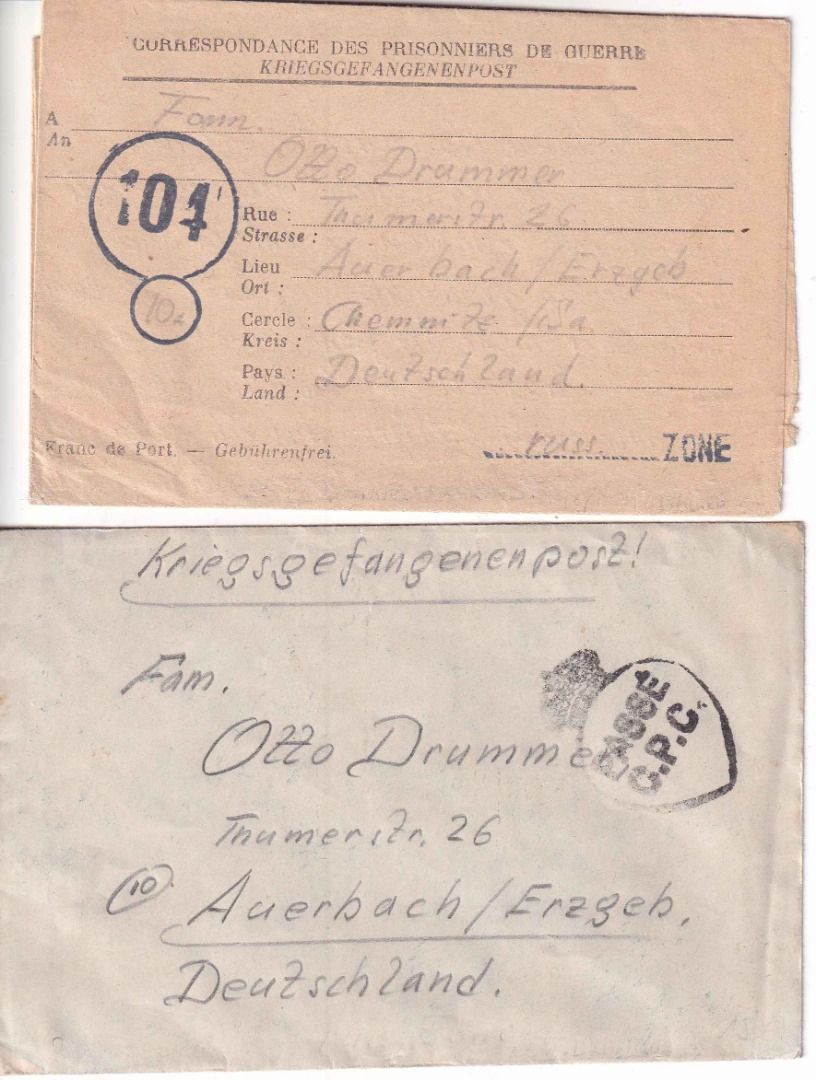 CORRESPONDANCE DES PRISONNIERS DE GUERRE
KRIEGSGEFANGENENPOST
A Fam.
An
Otto Drummer
104
Rue : Thumerstr. 26
Strasse :
Lieu Auerbach/Erzgeb
Ort :
10a
Cercle : Chemnitz /Sa
Kreis :
Pays : Deutschland.
Land :
Franc de Port. — Gebührenfrei.
russ. ZONE
Kriegsgefangenenpost!
Fam.
Otto Drummer
PASSÉ
C.P.C.
Thumerstr. 26
(10) Auerbach/Erzgeb.
Deutschland.